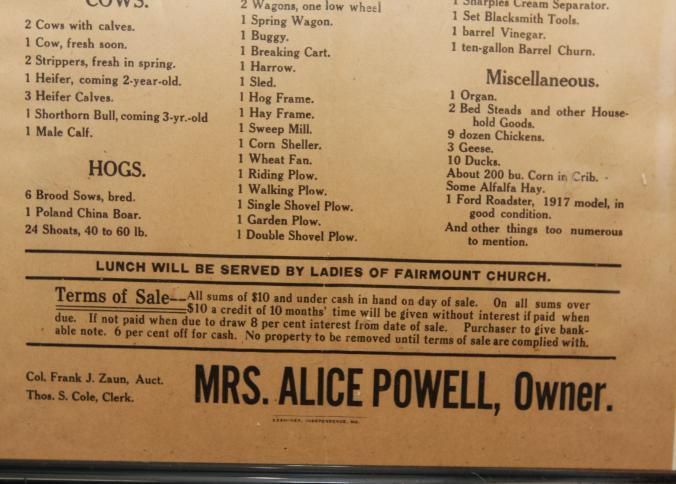 COWS.
2 Cows with calves.
1 Cow, fresh soon.
2 Strippers, fresh in spring.
1 Heifer, coming 2-year-old.
3 Heifer Calves.
1 Shorthorn Bull, coming 3-yr.-old
1 Male Calf.
HOGS.
6 Brood Sows, bred.
1 Poland China Boar.
24 Shoats, 40 to 60 lb.
2 Wagons, one low wheel
1 Spring Wagon.
1 Buggy.
1 Breaking Cart.
1 Harrow.
1 Sled.
1 Hog Frame.
1 Hay Frame.
1 Sweep Mill.
1 Corn Sheller.
1 Wheat Fan.
1 Riding Plow.
1 Walking Plow.
1 Single Shovel Plow.
1 Garden Plow.
1 Double Shovel Plow.
1 Sharples Cream Separator.
1 Set Blacksmith Tools.
1 barrel Vinegar.
1 ten-gallon Barrel Churn.
Miscellaneous.
1 Organ.
2 Bed Steads and other House-
hold Goods.
9 dozen Chickens.
3 Geese.
10 Ducks.
About 200 bu. Corn in Crib.
Some Alfalfa Hay.
1 Ford Roadster, 1917 model, in
good condition.
And other things too numerous
to mention.
LUNCH WILL BE SERVED BY LADIES OF FAIRMOUNT CHURCH.
Terms of Sale--All sums of $10 and under cash in hand on day of sale. On all sums over
$10 a credit of 10 months' time will be given without interest if paid when
due. If not paid when due to draw 8 per cent interest from date of sale. Purchaser to give bank-
able note. 6 per cent off for cash. No property to be removed until terms of sale are complied with.
Col. Frank J. Zaun, Auct.
Thos. S. Cole, Clerk.
MRS. ALICE POWELL, Owner.
EXAMINER, INDEPENDENCE, MO.